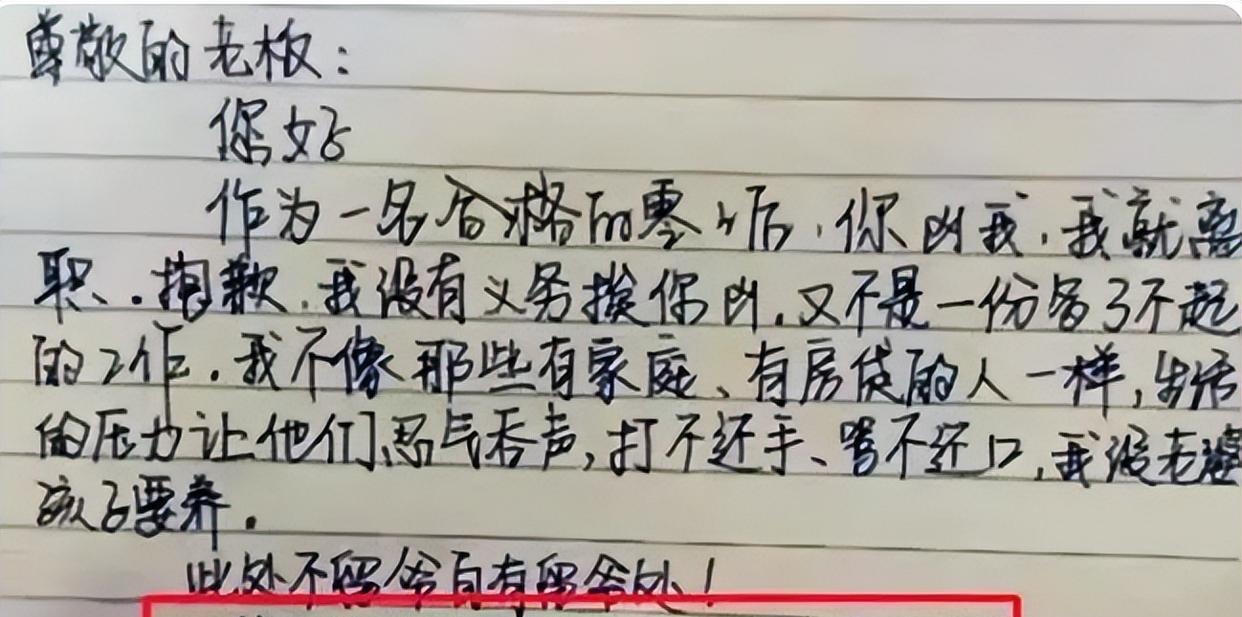 尊敬的老板：
您好
作为一名合格的零零后，你凶我，我就离
职．抱歉．我没有义务挨你凶．又不是一份多了不起
的工作．我不像那些有家庭、有房贷的人一样，生活
的压力让他们忍气吞声，打不还手、骂不还口，我没老婆
孩子要养．
此处不留爷自有留爷处！